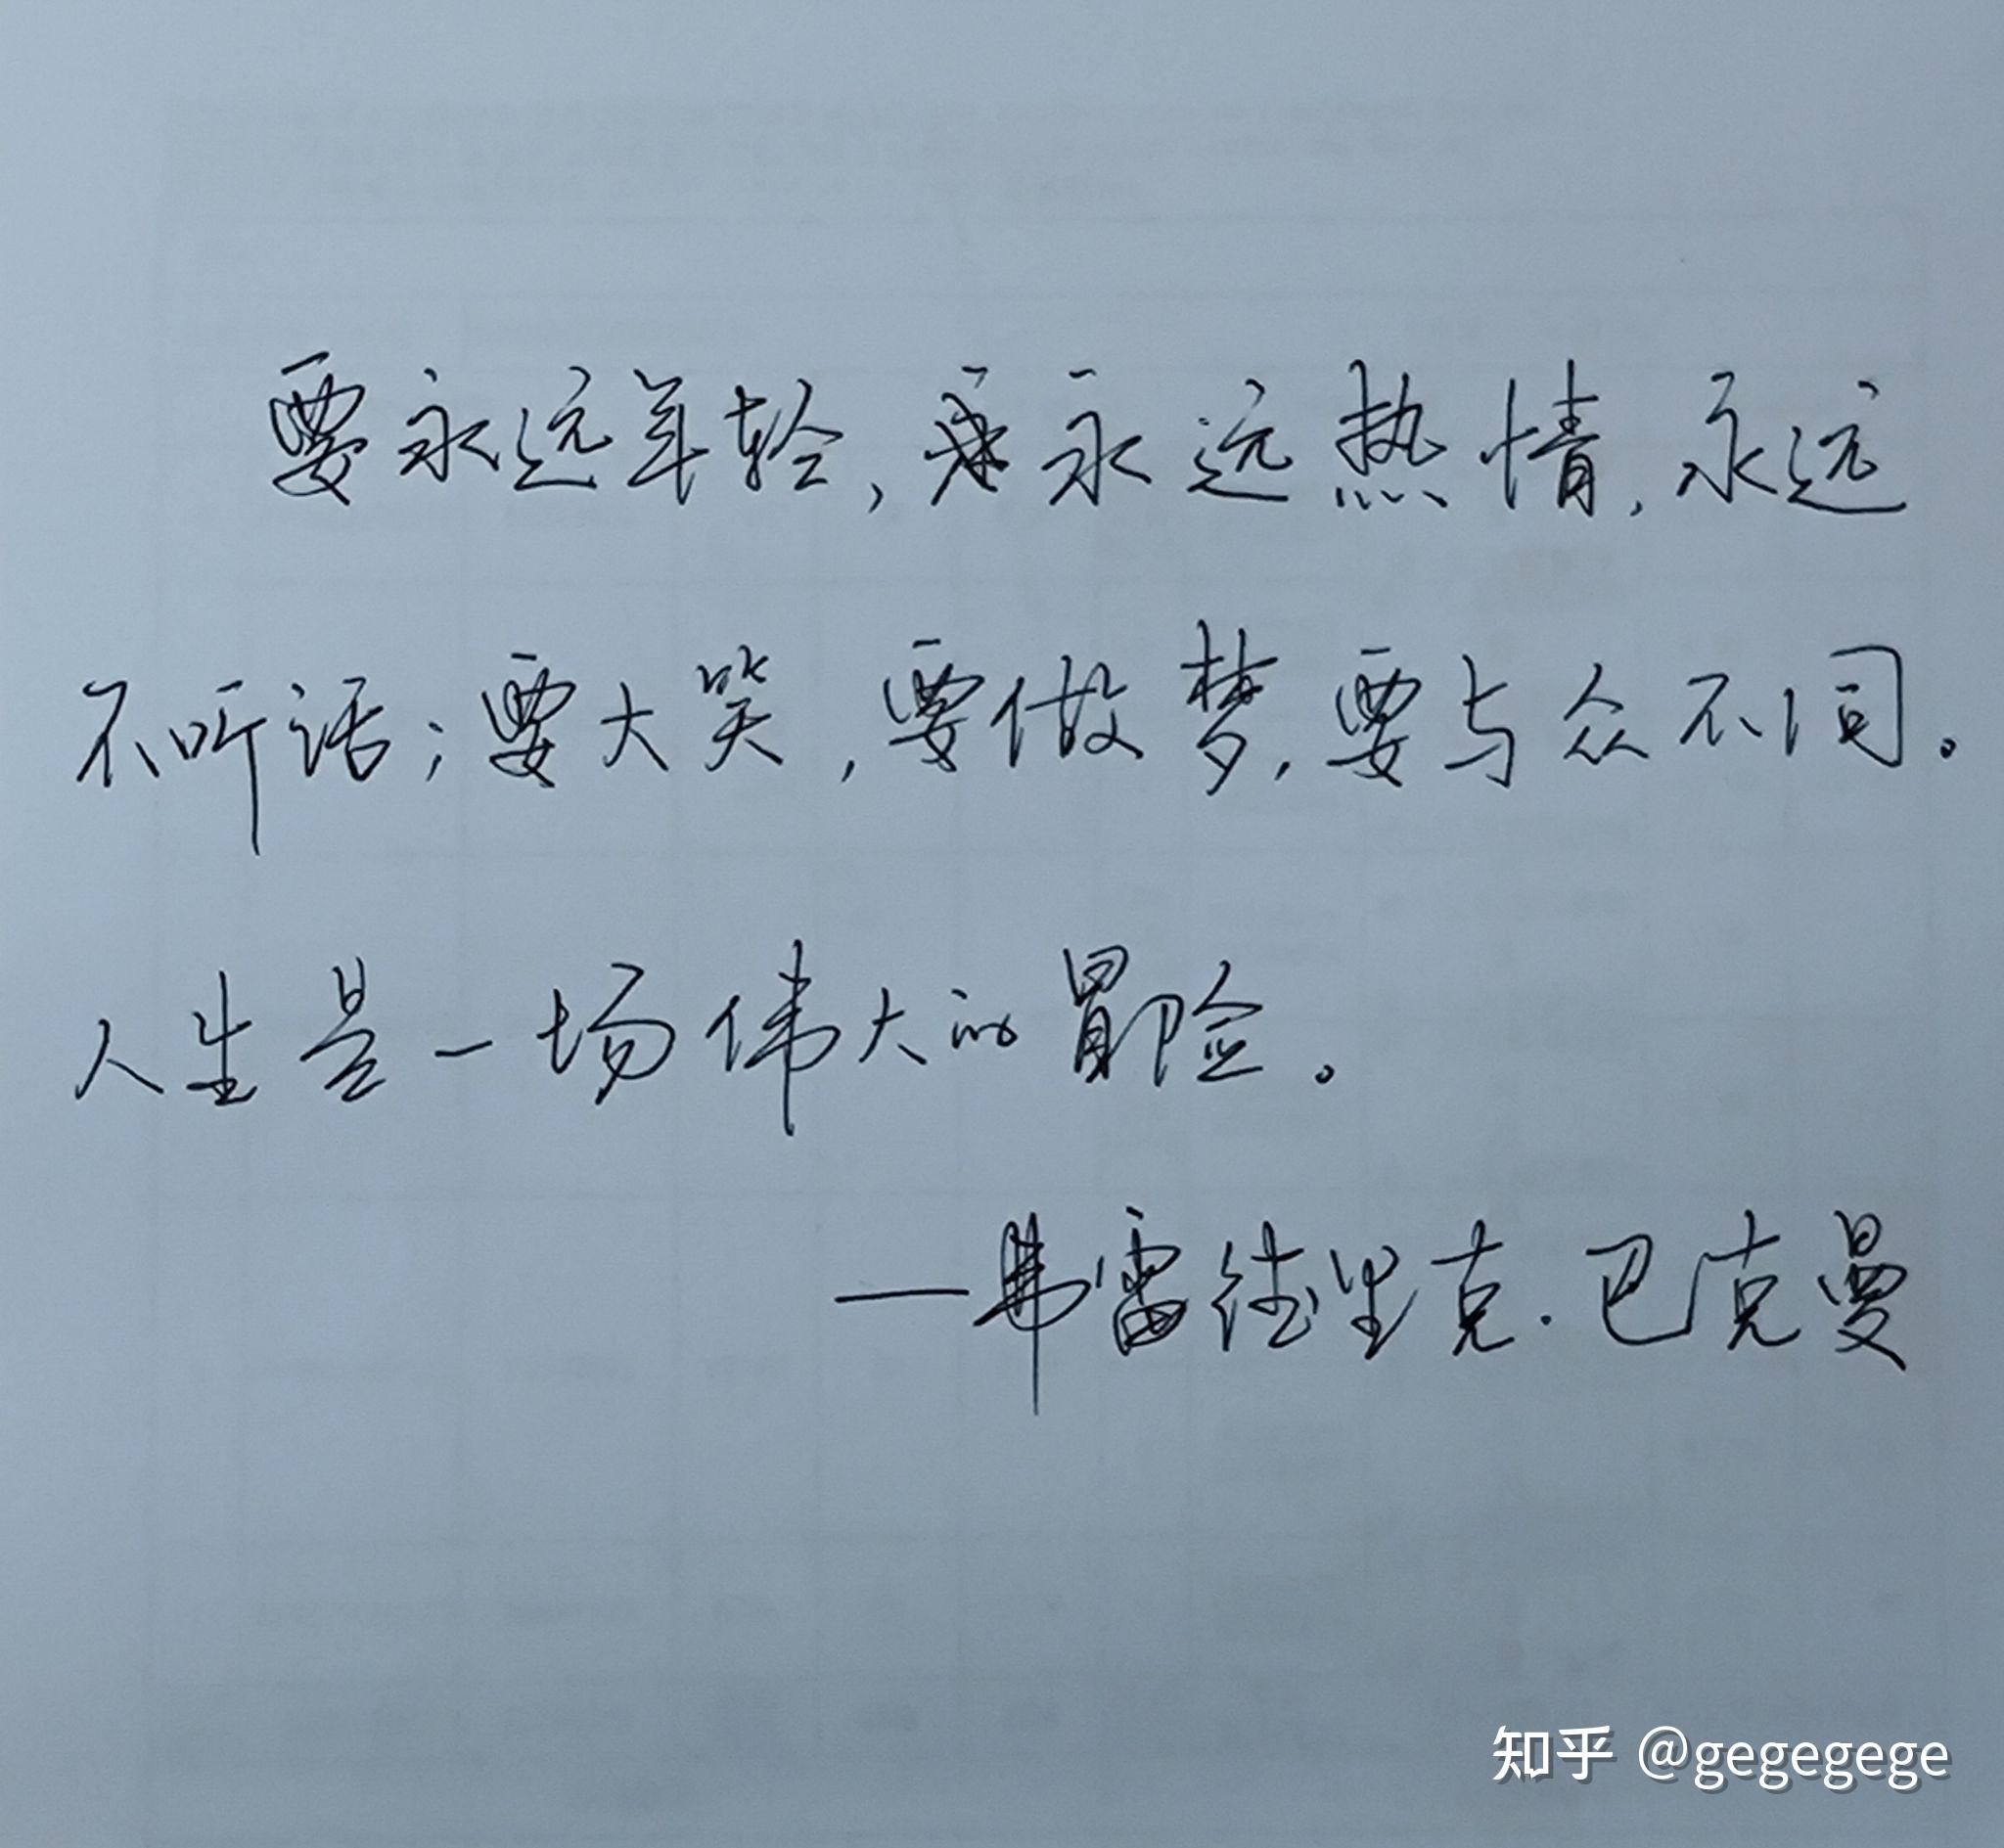 要永远年轻，永远热情，永远
不听话；要大笑，要做梦，要与众不同。
人生是一场伟大的冒险。
—弗雷德里克·巴克曼
知乎 @gegegege